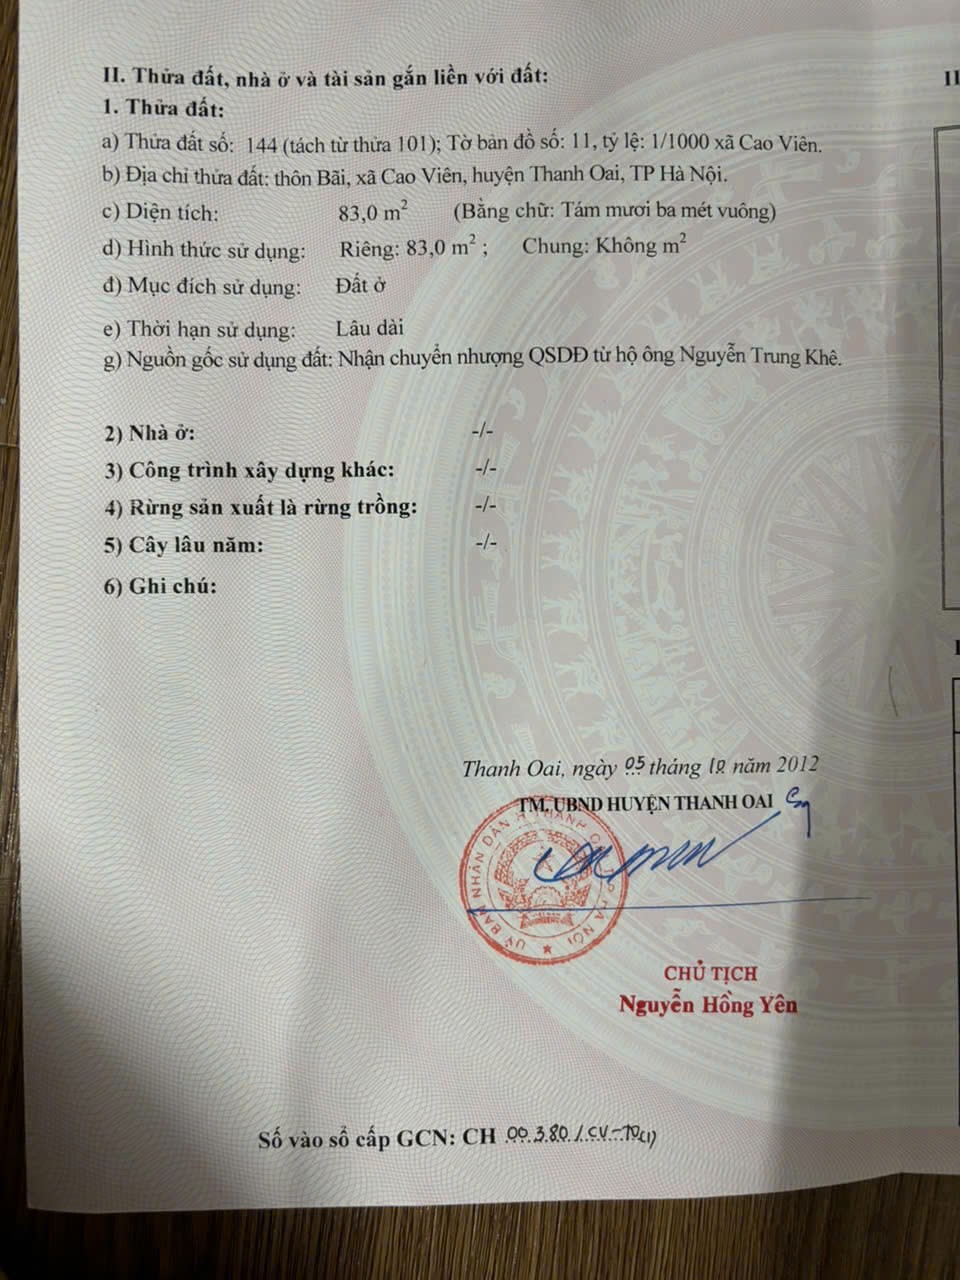 II. Thửa đất, nhà ở và tài sản gắn liền với đất:
1. Thửa đất:
a) Thửa đất số: 144 (tách từ thửa 101); Tờ bản đồ số: 11, tỷ lệ: 1/1000 xã Cao Viên.
b) Địa chỉ thửa đất: thôn Bãi, xã Cao Viên, huyện Thanh Oai, TP Hà Nội.
c) Diện tích: 83,0 m² (Bằng chữ: Tám mươi ba mét vuông)
d) Hình thức sử dụng: Riêng: 83,0 m² ; Chung: Không m²
đ) Mục đích sử dụng: Đất ở
e) Thời hạn sử dụng: Lâu dài
g) Nguồn gốc sử dụng đất: Nhận chuyển nhượng QSDĐ từ hộ ông Nguyễn Trung Khê.
2) Nhà ở: -/-
3) Công trình xây dựng khác: -/-
4) Rừng sản xuất là rừng trồng: -/-
5) Cây lâu năm: -/-
6) Ghi chú:
Thanh Oai, ngày 05 tháng 10 năm 2012
TM. UBND HUYỆN THANH OAI
CHỦ TỊCH
Nguyễn Hồng Yên
Số vào sổ cấp GCN: CH 00380/CV-